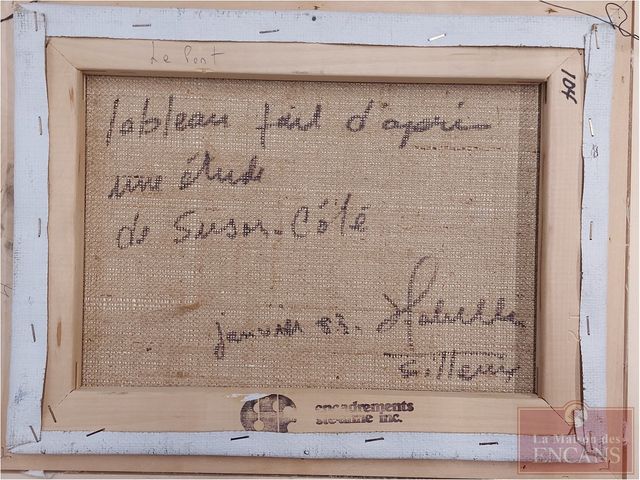 Le Pont
104
tableau fait d'après
une étude
de Suzor-Côté
janvier 83.
encadrements
ste-anne inc.
La Maison des
ENCANS